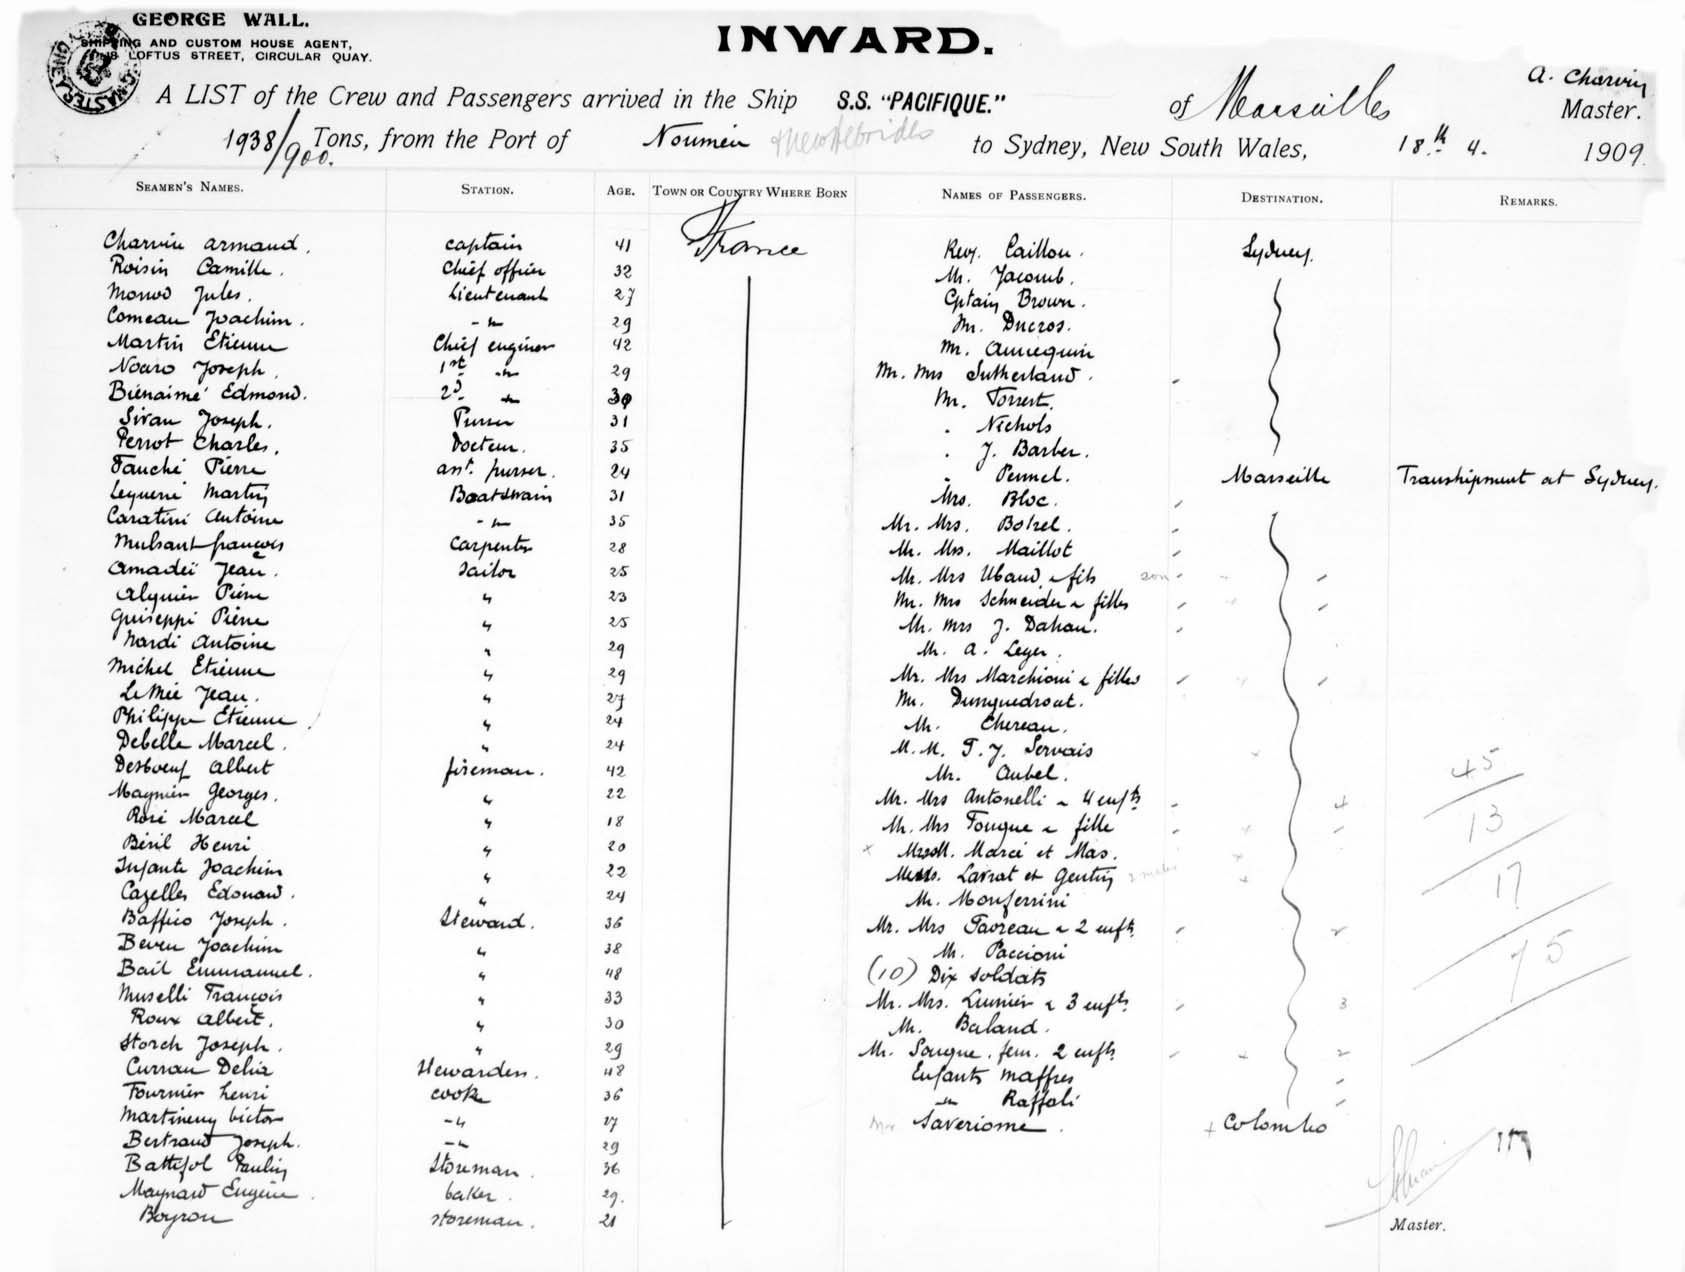 GEORGE WALL.
SHIPPING AND CUSTOM HOUSE AGENT,
LOFTUS STREET, CIRCULAR QUAY.
INWARD.
A. Charvin
A LIST of the Crew and Passengers arrived in the Ship S.S. "PACIFIQUE." of Marseilles Master.
1938/900. Tons, from the Port of Nouméa & New Hebrides to Sydney, New South Wales, 18th 4. 1909.
SEAMEN'S NAMES. STATION. AGE. TOWN OR COUNTRY WHERE BORN NAMES OF PASSENGERS. DESTINATION. REMARKS.
Charvin armand. captain 41 France
Roisin Camille. Chief officer 32
Monod Jules. Lieutenant 27
Comeau Joachim. -"- 29
Martin Etienne Chief engineer 42
Noaro Joseph. 1st -"- 29
Biénaimé Edmond. 2d " 30
Sivan Joseph. Purser 31
Perrot Charles. Docteur. 35
Fauché Pierre asst. purser. 24
Martin Boatswain 31
Caratini Antoine -"- 35
Mulsant françois Carpenter 28
Amadeï Jean. Sailor 25
Alquier Pierre " 23
Guiseppi Pierre " 25
Nardi Antoine " 29
Michel Etienne " 29
Le Mée Jean. " 27
Philippe Etienne " 24
Debelle Marcel. " 24
Desboeuf Albert fireman. 42
Maynier Georges. " 22
Rosi Marcel " 18
Béril Henri " 20
Infante Joachim " 22
Cazelles Edouard. " 24
Baffico Joseph. Steward. 36
Beven Joachim " 38
Bail Emmanuel. " 48
Muselli François " 33
Roux Albert. " 30
Storch Joseph. " 29
Curran Delia Stewardess. 48
Fournier henri cook 36
Martineng victor -"- 27
Bertrand Joseph. -"- 29
Battifol Paulin Storeman. 36
Maynard Eugène. baker. 29.
Boyron storeman. 21
Rev. Caillou. Sydney.
Mr. Jacomb.
Cptain Brown.
Mr. Ducros.
Mr. Annequin
Mr. Mrs Sutherland.
Mr. Torrest.
" Nichols
" J. Barber.
" Pennel. Marseille Transhipment at Sydney.
Mrs. Bloc.
Mr. Mrs. Botrel.
Mr. Mrs. Maillot
Mr. Mrs Ubaud & fils son
Mr. Mrs Schneider & filles
Mr. Mrs J. Dahan.
Mr. A. Leger.
Mr. Mrs Marchioni & filles
Mr. Dunguedrout.
Mr. Chereau.
M.M. T. J. Servais
Mr. Aubel.
Mr. Mrs Antonelli & 4 enfts 4
Mr. Mrs Fougue & fille
Marcé et Mas.
Larrat et Gentin 2 males
Mr. Monferrini
Mr. Mrs Favreau & 2 enfts 2
Mr. Paccioni
(10) Dix soldats
Mr. Mrs. Lumier & 3 enfts. 3
Mr. Baland.
Mr. Sougue. fem. 2 enfts 2
Enfants Maffres
-"- Raffali
Saveriome. + Colombo
45
13
17
75
Master.